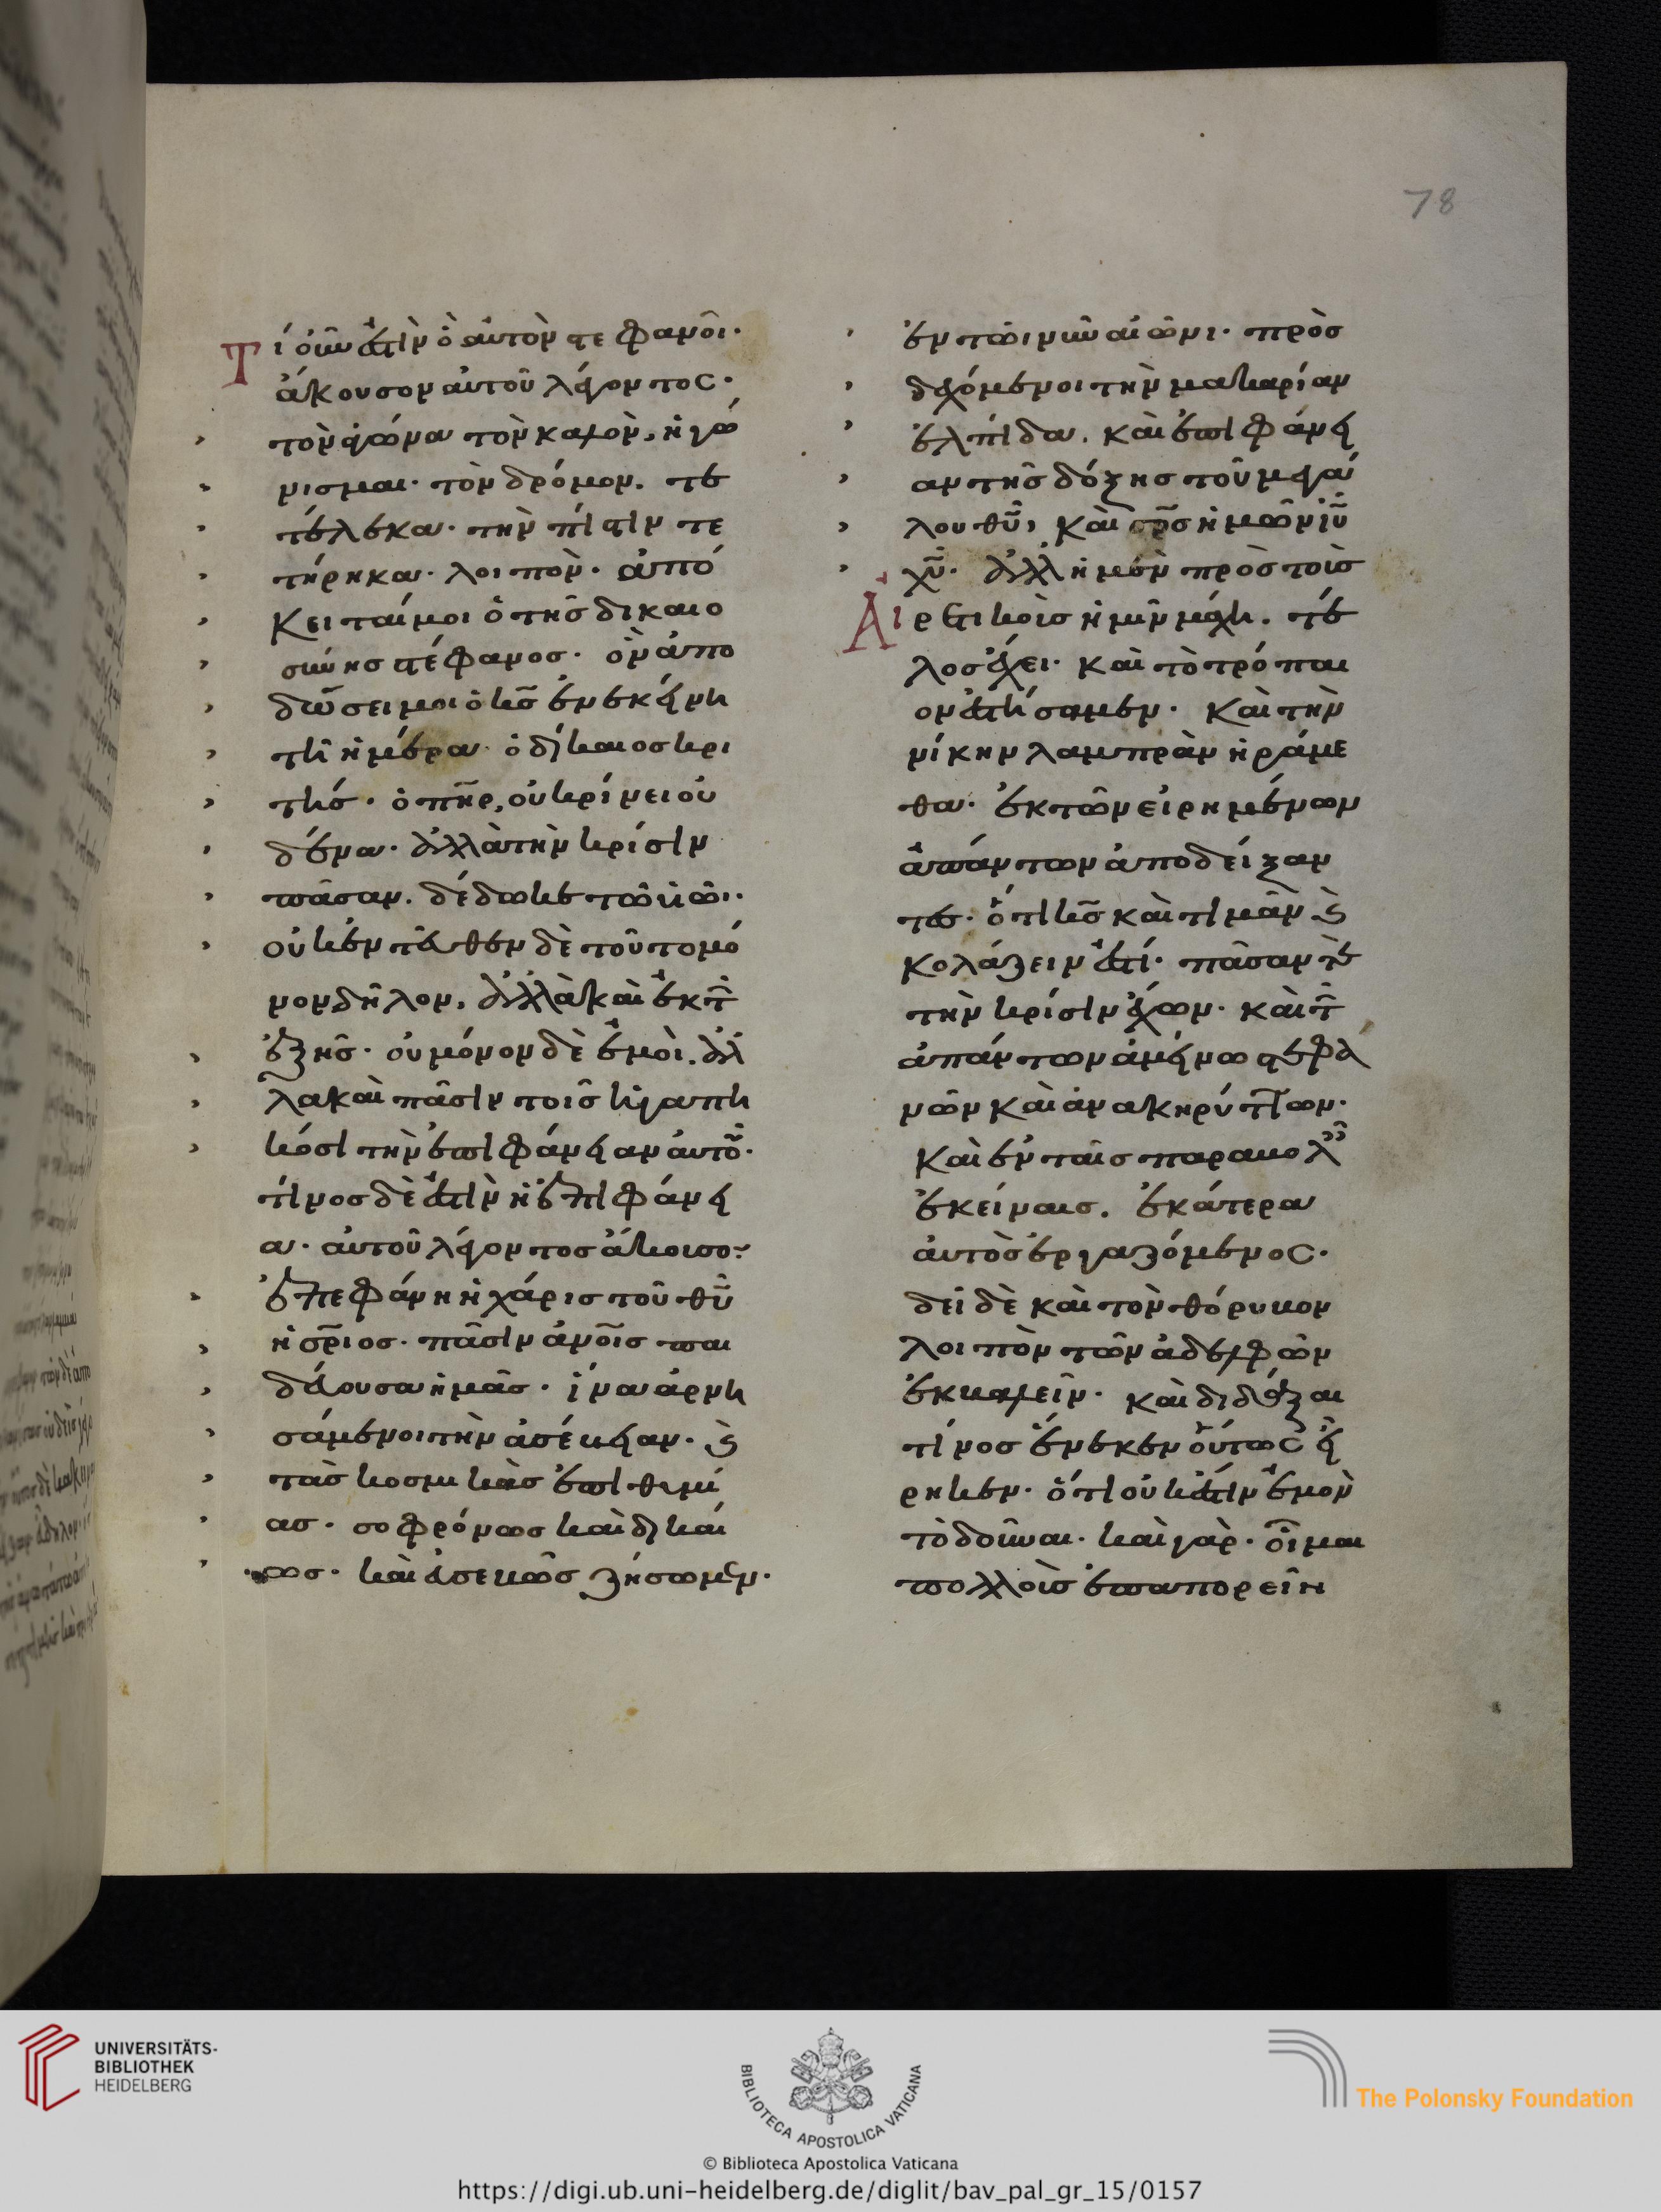 78
Τί οὖν ἐστὶν ὁ αὐτὸν στεφανοῖ·
ἄκουσον αὐτοῦ λέγοντος·
τὸν ἀγῶνα τὸν καλὸν, ἠγώ
νισμαι· τὸν δρόμον. τε
τέλεκα· τὴν πίστιν τε
τήρηκα· λοιπὸν· ἀπό
κειταί μοι ὁ τῆς δικαιο
σύνης στέφανος· ὃν ἀπο
δώσει μοι ὁ κς̄ ἐν ἐκείνη
τῆ ἡμέρα· ὁ δίκαιος κρι
τής· ὁ πη̄ρ, οὐ κρίνει οὐ
δένα· ἀλλὰ τὴν κρίσιν
πᾶσαν. δέδωκε τῶ υἱῶ·
οὐκ ἐνταῦθεν δὲ τοῦτο μό
νον δῆλον, ἀλλὰ καὶ ἐκ τ̄
ἑξῆς· οὐ μόνον δὲ ἐμοὶ. ἀλ
λα καὶ πᾶσιν τοῖς ἠγαπη
κόσι τὴν ἐπιφάνειαν αὐτοῦ·
τίνος δὲ ἐστὶν ἡ ἐπιφάνει
α· αὐτοῦ λέγοντος ἄκουσον·
ἐπεφάνη ἡ χάρις τοῦ θῡ
ἡ σρ̄ιος· πᾶσιν ἀνοῖς παι
δεύουσα ἡμᾶς· ἵνα ἀρνη
σάμενοι τὴν ἀσέβειαν· ϗ
τὰς κοσμικὰς ἐπιθυμί
ας· σοφρόνως καὶ δικαί
ως· καὶ εὐσεβῶς ζήσωμεν·
ἐν τῶι νῦν αἰῶνι· προσ
δεχόμενοι τὴν μακαρίαν
ἐλπίδα. καὶ ἐπιφάνει
αν τῆς δόξης τοῦ μεγά
λου θῡ, καὶ σρ̄ς ἡμῶν ιῡ
χῡ· ἀλλ ἡ μὲν πρὸς τοὺς
Αἱρετικοὺς ἡμῖν μάχη. τέ
λος ἔχει· καὶ τὸ τρόπαι
ον ἐστήσαμεν· καὶ τὴν
νίκην λαμπρὰν ἠράμε
θα· ἐκ τῶν εἰρημένων
ἁπάντων ἀποδείξαν
τες· ὅτι κς̄ καὶ τιμᾶν ϗ
κολάζειν ἐστί· πᾶσαν τε
τὴν κρίσιν ἔχων· καὶ τ̄
ἁπάντων ἀμείνω στεφά
νῶν καὶ ἀνακηρύττων·
καὶ ἐν ταῖς παραβολαῖς
ἐκείναις. ἑκάτερα
αὐτὸς ἐργαζόμενος·
δεῖ δὲ καὶ τὸν θόρυβον
λοιπὸν τῶν ἀδελφῶν
ἐκβαλεῖν· καὶ διδάξαι
τίνος ἕνεκεν οὕτως εἴ
ρηκεν· ὅτι οὐκ ἔστιν ἐμὸν
τὸ δοῦναι· καὶ γὰρ· οἶμαι
πολλοὺς ἐπαπορεῖν
UNIVERSITÄTS-
BIBLIOTHEK
HEIDELBERG
BIBLIOTECA APOSTOLICA VATICANA
The Polonsky Foundation
© Biblioteca Apostolica Vaticana
https://digi.ub.uni-heidelberg.de/diglit/bav_pal_gr_15/0157